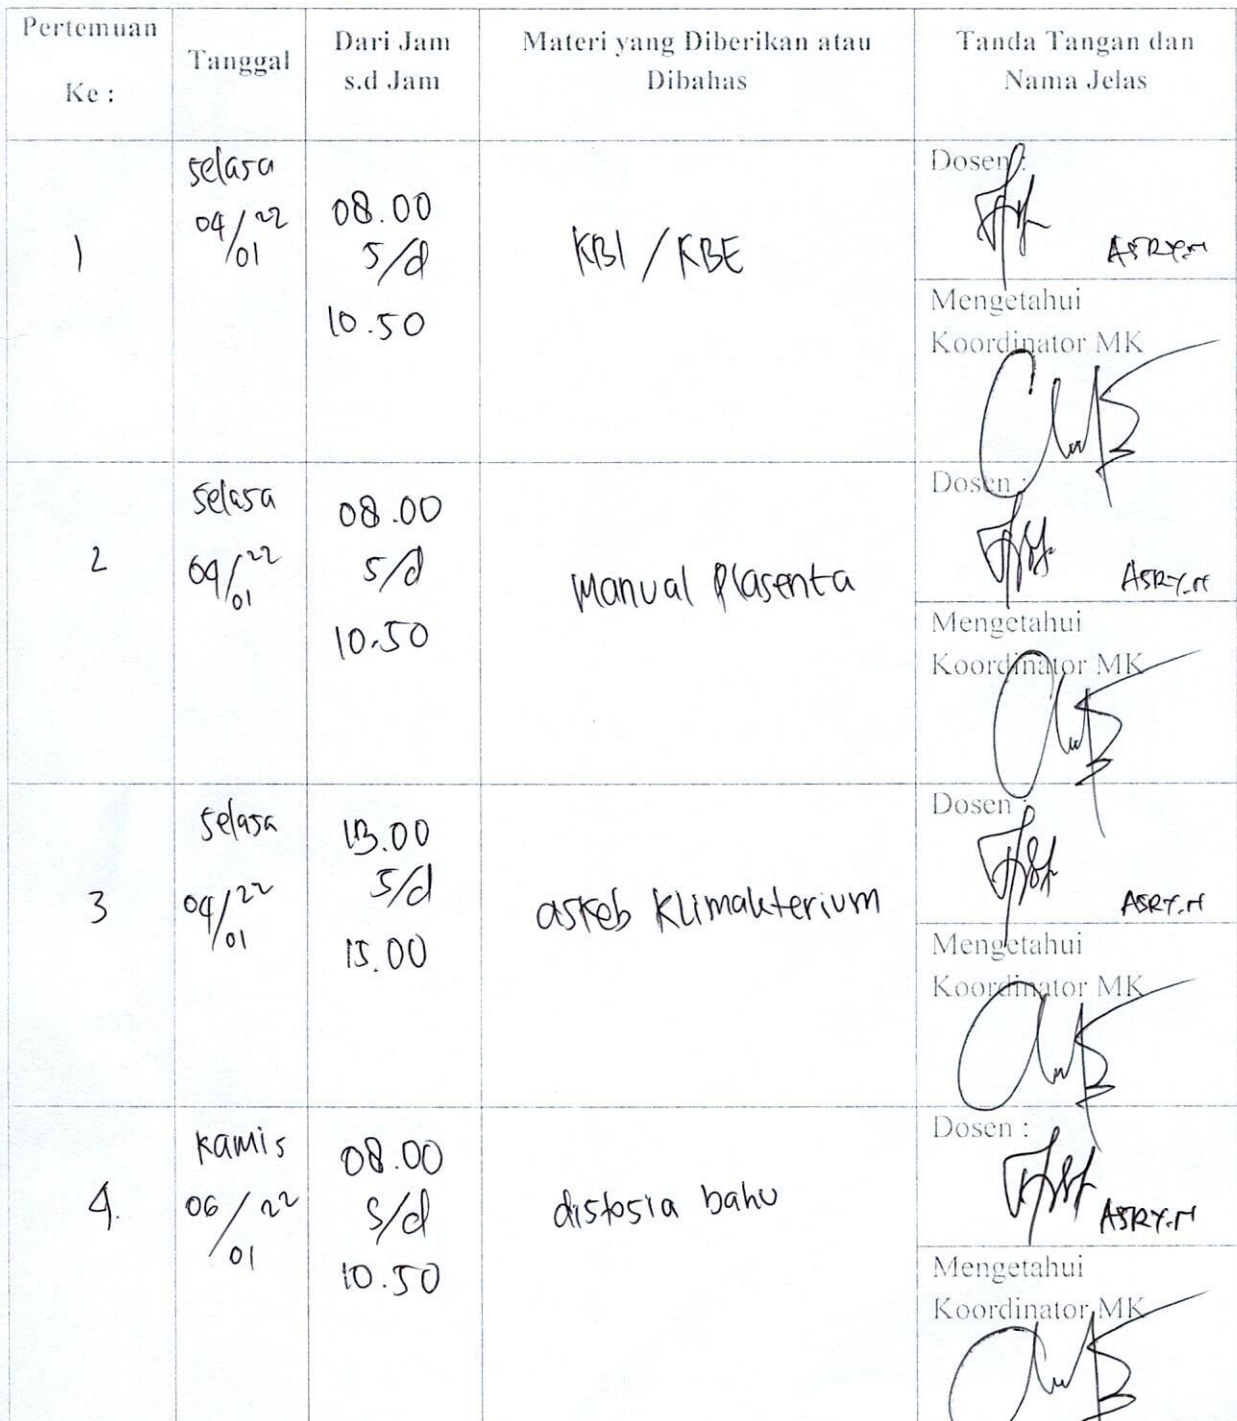 Pertemuan
Ke :
Tanggal
Dari Jam
s.d Jam
Materi yang Diberikan atau
Dibahas
Tanda Tangan dan
Nama Jelas
1
selasa
04/22
01
08.00
s/d
10.50
KBI / KBE
Dosen :
ASRY.N
Mengetahui
Koordinator MK
2
selasa
04/22
01
08.00
s/d
10.50
Manual Plasenta
Dosen :
ASRY.N
Mengetahui
Koordinator MK
3
selasa
04/22
01
13.00
s/d
15.00
askeb Klimakterium
Dosen :
ASRY.N
Mengetahui
Koordinator MK
4.
kamis
06/22
01
08.00
s/d
10.50
distosia bahu
Dosen :
ASRY.N
Mengetahui
Koordinator MK